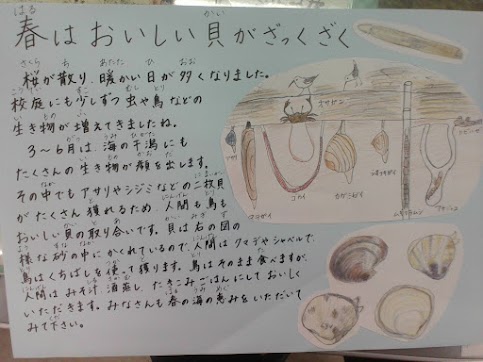 春はおいしい貝がざっくざく
桜が散り、暖かい日が多くなりました。
校庭にも少しずつ虫や鳥などの
生き物が増えてきましたね。
3～6月は、海の干潟にも
たくさんの生き物が顔を出します。
その中でもアサリやシジミなどの二枚貝
がたくさん獲れるため、人間も鳥も
おいしい貝の取り合いです。貝は右の図の
様な砂の中にかくれているので、人間はクマデやシャベルで、
鳥はくちばしを使って獲ります。鳥はそのまま食べますが、
人間はみそ汁、酒蒸し、たきこみごはんにしておいしく
いただきます。みなさんも春の海の恵みをいただいて
みて下さい。
アサリ
マテガイ
ゴカイ
カガミガイ
アナジャコ